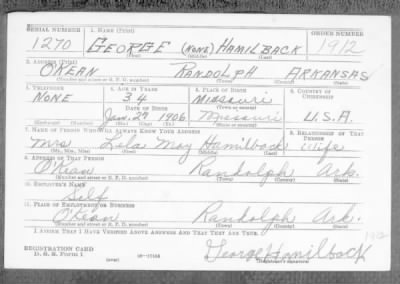 SERIAL NUMBER 1. NAME (Print) ORDER NUMBER
1270 GEORGE (NONE) HAMILBACK 1912
(First) (Middle) (Last)
2. ADDRESS (Print)
O'KEAN RANDOLPH ARKANSAS
(Number and street or R. F. D. number) (Town) (County) (State)
3. TELEPHONE 4. AGE IN YEARS 5. PLACE OF BIRTH 6. COUNTRY OF CITIZENSHIP
NONE 34 Missouri
DATE OF BIRTH (Town or county)
Jan. 27 1906 Missouri U.S.A.
(Exchange) (Number) (Mo.) (Day) (Yr.) (State or country)
7. NAME OF PERSON WHO WILL ALWAYS KNOW YOUR ADDRESS 8. RELATIONSHIP OF THAT PERSON
Mrs Lola May Hamilback Wife
(Mr., Mrs., Miss) (First) (Middle) (Last)
9. ADDRESS OF THAT PERSON
O'Kean Randolph Ark.
(Number and street or R. F. D. number) (Town) (County) (State)
10. EMPLOYER'S NAME
Self
11. PLACE OF EMPLOYMENT OR BUSINESS
O'Kean Randolph Ark.
(Number and street or R. F. D. number) (Town) (County) (State)
I AFFIRM THAT I HAVE VERIFIED ABOVE ANSWERS AND THAT THEY ARE TRUE.
1912
REGISTRATION CARD George Hamilback
D. S. S. Form 1 (over) (Registrant's signature)